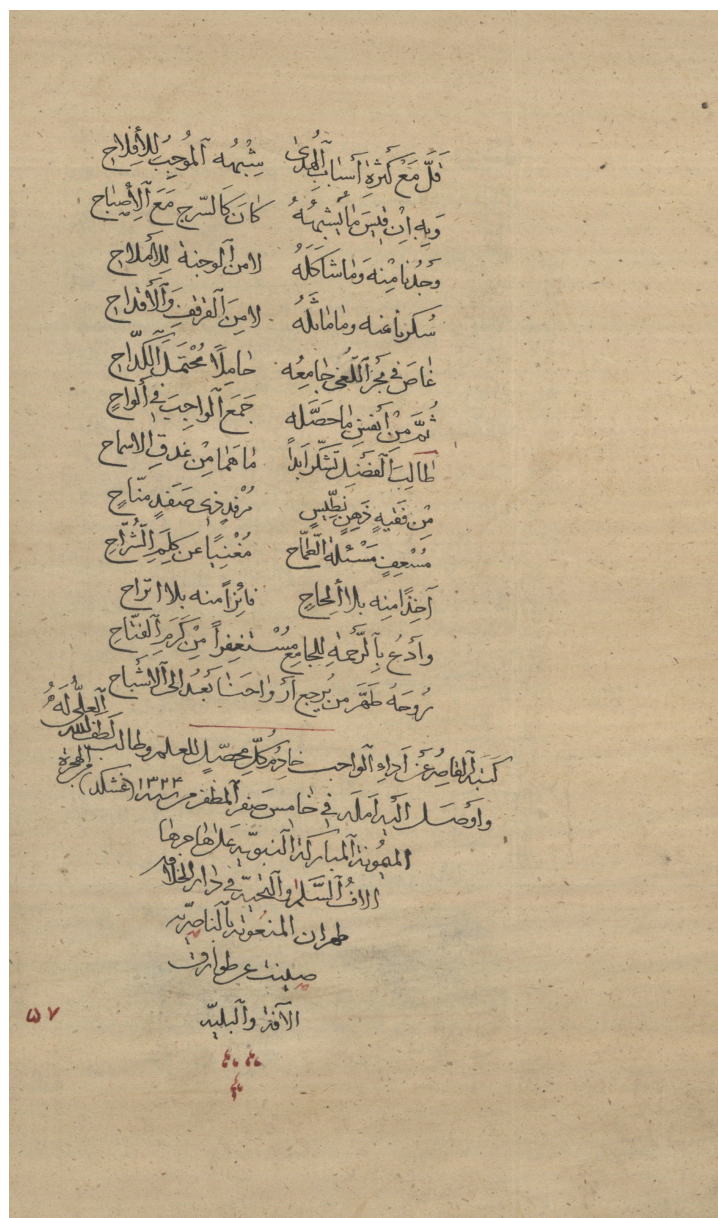 قَلَّ مَعْ كَثْرَةِ أَسْبَابِ الْهُدَىٰ شِبْهُه الْمُوجِبُ لِلْأَفِلاجِ
وَبِهِ اِنْ قِيسَ مٰا يُشْبِهُهُ كانَ كَالسّرجِ مَعَ الْأِصْباحِ
وَجُدُنا مِنْه وَمٰا شَاكَلَهُ لا من الوجنة لِلأمْلاحِ
سُكرنا عنه وما مٰاثَلَهُ لا مِنَ القرقفِ وَالْأَقداحِ
غاصَ فى بحر اللّغى جامِعُه حامِلًا مُحْتَمَلَ الْكَدّاحِ
ثُمَّ مِنْ أَنْفَسِ مٰا حَصَّلَه جَمَع الواجِبَ فِى أَلواحٍ
طٰالِبَ الْفَضْلِ تَشَكَّر اَبَداً مٰا هَمٰا مِنْ غدقِ الاسماح
مِن فَقيهٍ ذَهِنٍ نِطّيسٍ مُرْفِدٍ ذى صَفَدٍ منّاحٍ
مُسْعِفٍ مَسْئلةَ الطّمّاح مُغْنِياً عن كَلِمِ الشُّرّاحِ
آخِذًا مِنه بلا اِلحاحٍ فائِزاً منه بلا اتراحِ
وادْعُ بِالرَّحمةِ لِلجامِعِ مُسْتغفِراً مِنْ كَرَمِ الفَتّاحِ
رُوحَهُ طَهَّرَ من يُرجِع اَرْواحَنا بَعْدُ الى الأشباح
كَتَبَه القاصِرُ عَنْ اَداءِ الواجب خادم كلِّ محصّلٍ للعلم وطالب لطف الله العلىّ لَهُ
واَوْصَلَ اليه اَمَلَه فى خامس صفر المظفر من سنه ١٣٢٤ (غشكد) من الهجرة
الميمونة المباركة النبويّة على هاجرها
الاف السَّلام والتحيّة فى دار الخلافه
طهران المنعوتة بالناصريّه
صينت عن طوارق
الآفة والبليّه
٥٧